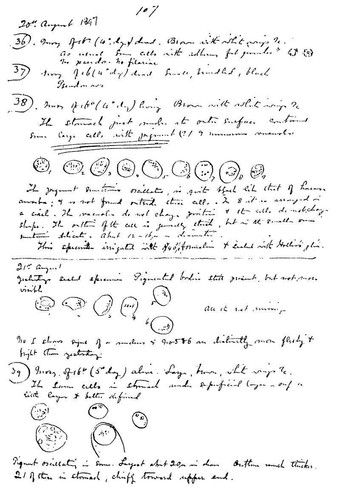 107
20th August 1897
36. Mosq. of 18th (4th dy) dead. Brown with white wings &c.
As usual some cells with adhering fat granules
No pseudo. No filariae
37. Mosq of 16 (4th dy) dead Small, brindled, black
38. Mosq of 16th (4th dy) living Brown with white wings &c
The stomach just under its outer surface contained
some large cells with pigment (?) & numerous vacuoles
1 2 3 4 5 6 7 8
The pigment sometimes oscillates, is quite black like that of human
& is not found outside these cells. In 8 it is arranged in
a circle. The vacuoles do not change position & the cells do not change
shape. The outline of the cell is generally sharp, but in the smaller ones
sometimes delicate. About in diameter.
This specimen irrigated with formalin & sealed with
21st August
Yesterdays sealed specimen Pigmented bodies still present, but not more
visible
1 2 3 4 5 6
No 1 shows signs of a nucleus & No 5 & 6 are distinctly more fleshy &
bright than yesterday.
39. Mosq. of 16th (5th day) alive. Large, brown, white wings &c.
The same cells in stomach under superficial layer - only
larger & better defined
Pigment oscillating in some. Largest about in diam Outline much thicker.
21 of these in stomach, chiefly toward upper end.